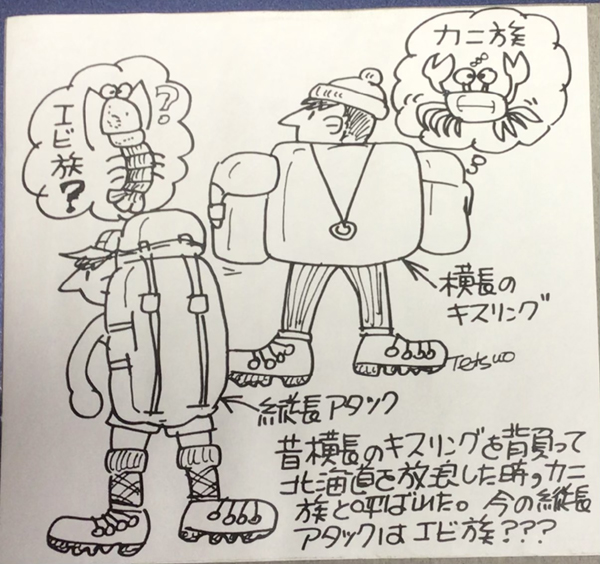 カニ族
エビ族?
??
横長の
キスリング
Tetsuo
縦長アタック
昔横長のキスリングを背負って
北海道を放浪した時、カニ
族と呼ばれた。今の縦長
アタックはエビ族???